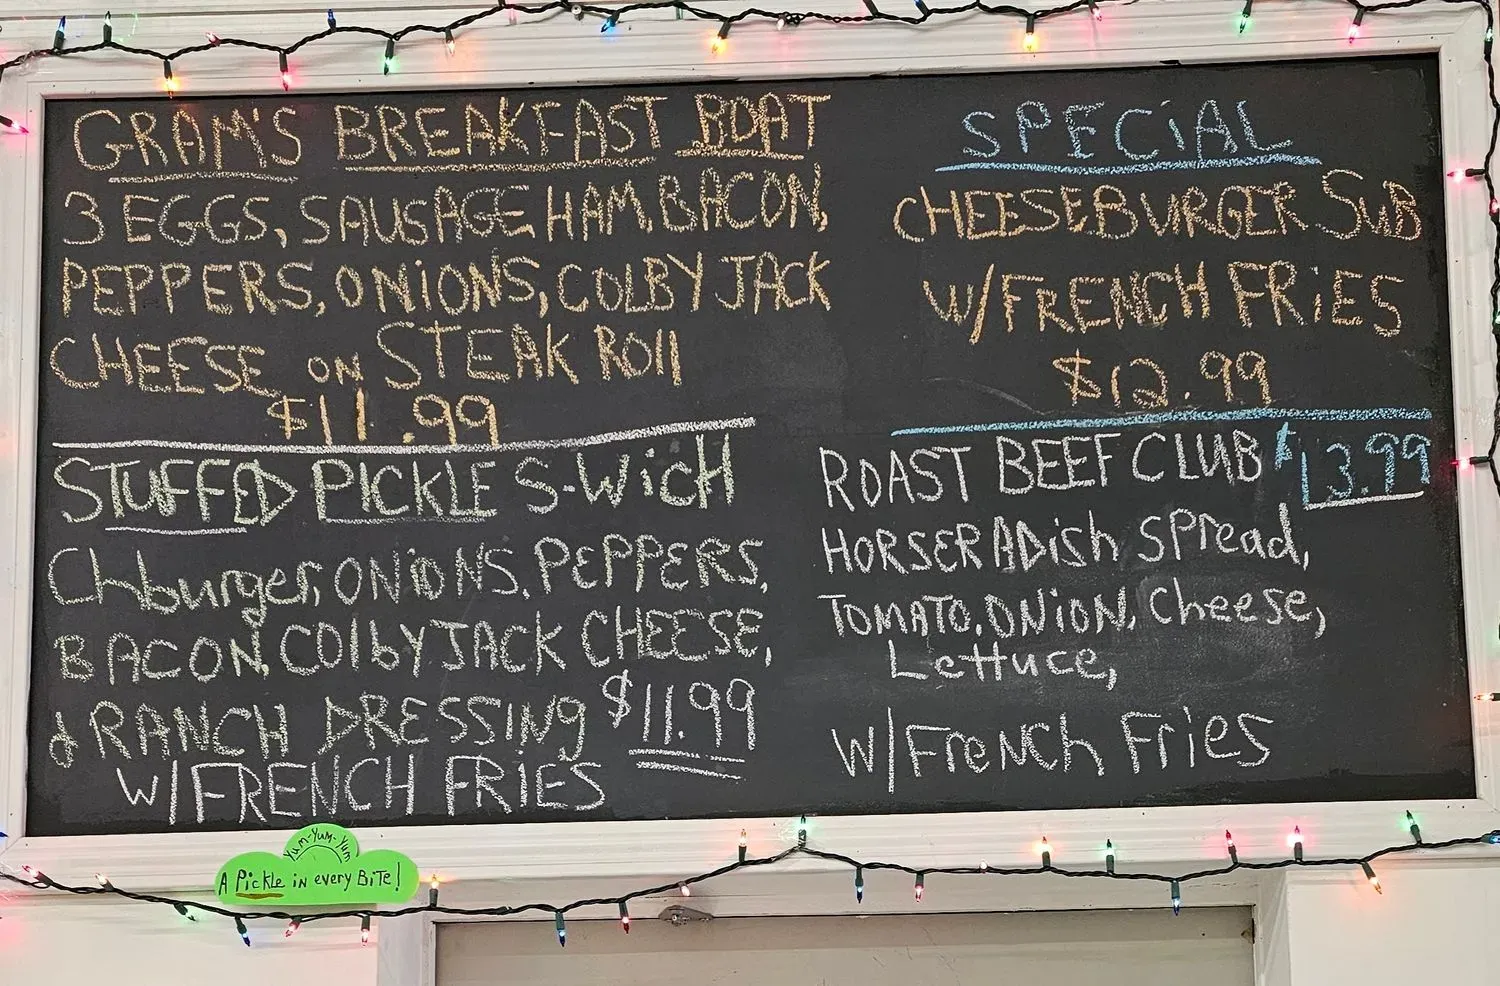 GRAM'S BREAKFAST BOAT
3 EGGS, SAUSAGE HAM, BACON,
PEPPERS, ONIONS, COLBY JACK
CHEESE ON STEAK ROll
$11.99
STUFFED PICKLE S-WicH
Chburger, ONIONS, PEPPERS,
BACON, COlbY JACK CHEESE,
& RANCH DRESSING $11.99
W/FRENCH FRIES
SPECiAL
CHEESEBURGER SUB
W/FRENCH FRiES
$12.99
ROAST BEEF CLUB $13.99
HORSERADish spread,
TOMATO, ONiON, Cheese,
Lettuce,
W/FreNch Fries
Yum-Yum-Yum
A Pickle in every BiTe!